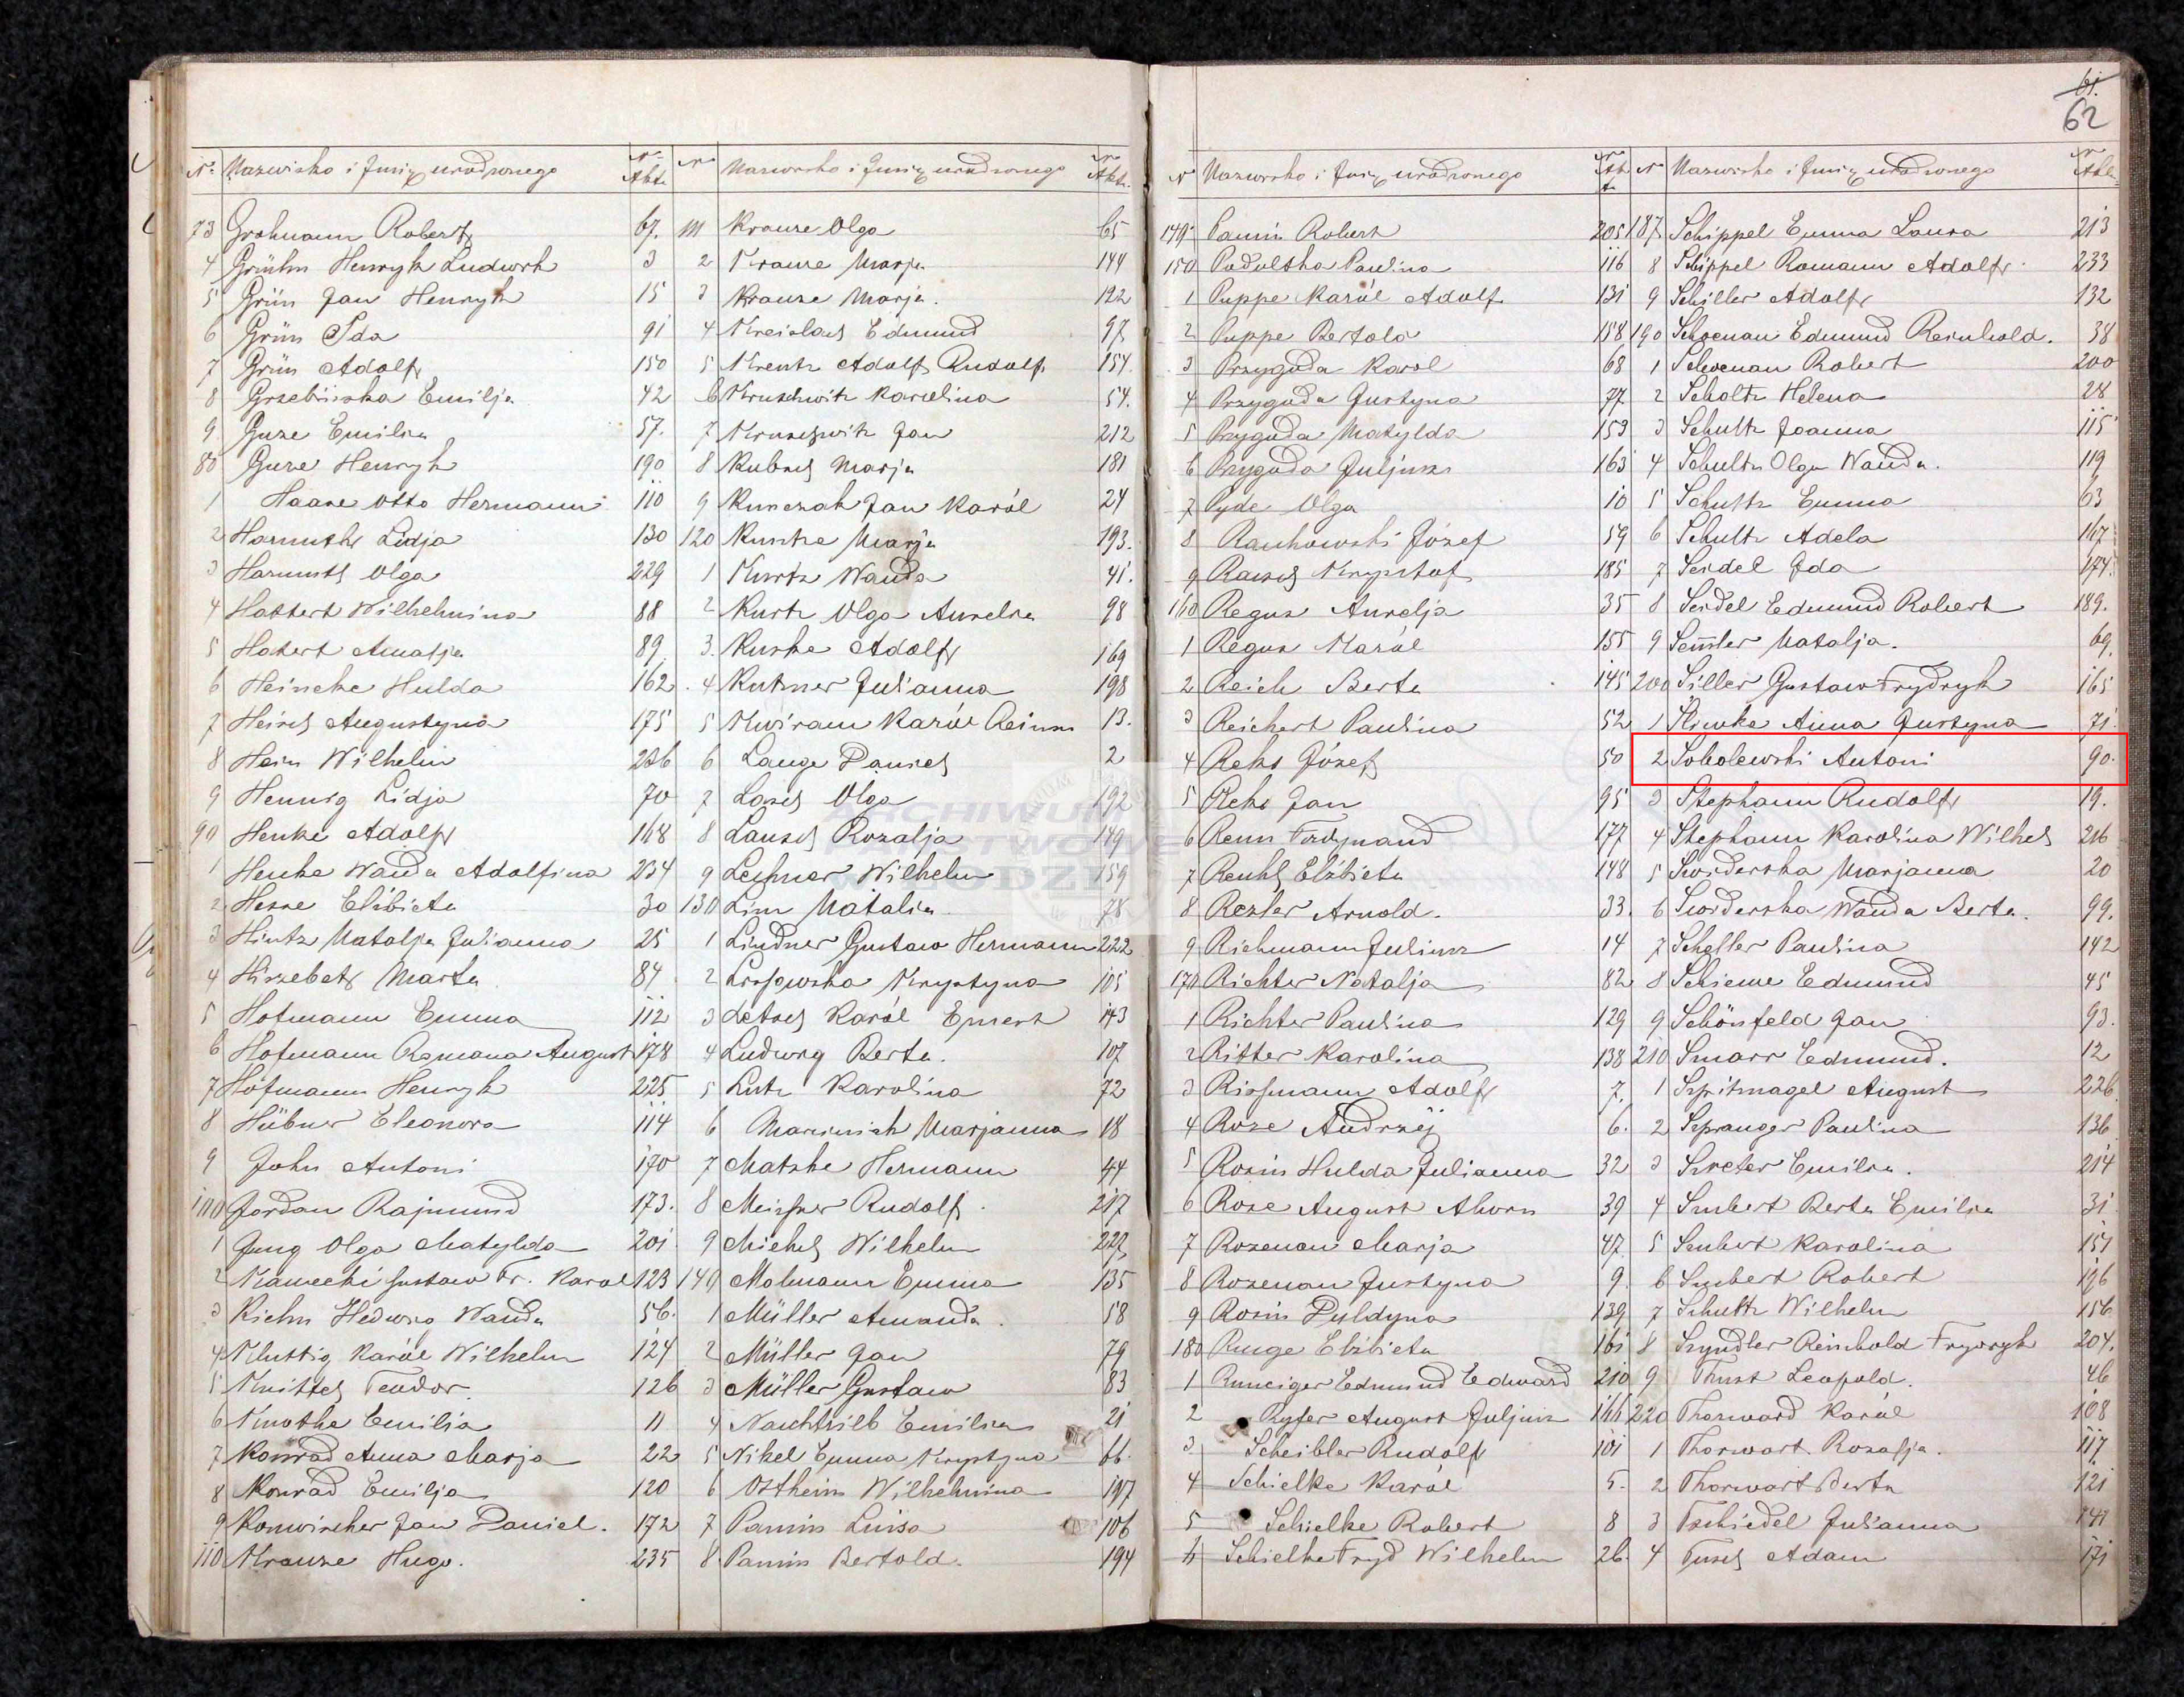 61.
62
No Nazwisko i Imię urodzonego No Aktu
73 Grohmann Robert 67.
4 Grühn Henryk Ludwik 3
5 Grün Jan Henryk 15
6 Grün Ida 91
7 Grün Adolf 150
8 Grzebińska Emilja 42
9 Guze Emilia 57.
80 Guze Henryk 190
1 Haase Otto Hermann 110
2 Harmuth Lidja 130
3 Harmuth Olga 229
4 Hattert Wilhelmina 88
5 Hatert Amalja 89
6 Heincke Hulda 162
7 Heinch Augustyna 175
8 Hein Wilhelm 226
9 Hennig Lidja 70
90 Henke Adolf 168
1 Henke Wanda Adolfina 234
2 Hesse Elżbieta 30
3 Hintz Natalja Julianna 25
4 Hirzebet Marta 84
5 Hofmann Emma 112
6 Hofmann Romana August 178
7 Hofmann Henryk 225
8 Hübner Eleonora 114
9 John Antoni 170
100 Jordan Rajmund 173.
1 Jung Olga Matylda 201
2 Kawecki Gustaw Fr. Karol 123
3 Kiehn Hedwig Wanda 56.
4 Kluttig Karól Wilhelm 124
5 Knittel Teodor 126
6 Knothe Emilia 11
7 Konrad Anna Marja 22
8 Konrad Emilja 120
9 Konwischer Jan Daniel. 172
110 Krause Hugo. 235
No Nazwisko i Imię urodzonego No Aktu
111 Krause Olga 65
2 Krause Marja 144
3 Krause Marja. 122
4 Kreislach Edmund 97
5 Krentz Adolf Rudolf 154.
6 Kruschwitz Karolina 54.
7 Kruschwitz Jan 212
8 Kubsch Marja 181
9 Kunczak Jan Karól 24
120 Kuntze Marja 193.
1 Kurtz Wanda 41.
2 Kurtz Olga Aurelia 98
3. Kuske Adolf 169
4 Kutzner Julianna 198
5 Kwiram Karól Reinh 13.
6 Lange Daniel 2
7 Lasch Olga 192
8 Lausch Rozalja 149
9 Lechner Wilhelm 159
130 Linn Natalia 78
1 Lindner Gustaw Hermann 222
2 Lissowska Krystyna 105
3 Letsch Karól Ernest 143
4 Ludwig Berta. 107
5 Lutz Karolina 72
6 Marciniak Marjanna 18
7 Matzke Hermann 44
8 Meissner Rudolf 217
9 Michel Wilhelm 227
140 Molmann Emma 135
1 Müller Amanda 58
2 Müller Jan 79
3 Müller Gustaw 83
4 Nachtsilb Emilia 21
5 Nikel Emma Krystyna 66.
6 Ostheim Wilhelmina 197
7 Pamin Luisa 106
8 Pamin Bertold. 194
No Nazwisko i Imię urodzonego No Aktu
149 Pamin Robert 205
150 Podolska Paulina 116
1 Puppe Karól Adolf 131
2 Puppe Bertold 158
3 Przygoda Karol 68
4 Przygoda Justyna 77
5 Przygoda Matylda 153
6 Przygoda Juljusz 163
7 Pyde Olga 10
8 Rankowski Józef 59
9 Rausch Krysztof 185
160 Regus Aurelja 35
1 Regus Karól 155
2 Reich Berta 145
3 Reichert Paulina 52
4 Reks Józef 50
5 Reks Jan 95
6 Renn Ferdynand 177
7 Renkl Elżbieta 148
8 Rezler Arnold. 33.
9 Richmann Juliusz 14
170 Richter Natalja 82
1 Richter Paulina 129
2 Ritter Karolina 138
3 Rissmann Adolf 7.
4 Roze Andrzéj 6.
5 Rosin Hulda Julianna 32
6 Rose August Ahorn 39
7 Rozenau Marja 47
8 Rozenau Justyna 9.
9 Rosin Dyldyna 139
180 Ruge Elżbieta 161
1 Runciger Edmund Edward 210
2 Ryfer August Juljusz 166
3 Scheibler Rudolf 101
4 Schielke Karól 5.
5 Schielke Robert 8
6 Schielke Fryd Wilhelm 26.
No Nazwisko i Imię urodzonego No Aktu
187 Schippel Emma Laura 213
8 Schippel Romann Adolf 233
9 Schiller Adolf 132
190 Schoenau Edmund Reinhold. 38
1 Schoenau Robert 200
2 Scholtz Helena 28
3 Schultz Joanna 115
4 Schultz Olga Wanda. 119
5 Schultz Emma 63
6 Schultz Adela 167
7 Seidel Ida 174.
8 Seidel Edmund Robert 189.
9 Semler Natalja. 69
200 Siller Gustaw Frydryk 165
1 Sliwke Anna Justyna 71.
2 Sobolewski Antoni 90.
3 Stephann Rudolf 19.
4 Stephann Karolina Wilhel 216
5 Swiderska Marjanna 20
6 Swiderska Wanda Berta. 99.
7 Scheller Paulina 142
8 Schieme Edmund 45
9 Schönfeld Jan 93.
210 Smarr Edmund. 12
1 Szpitznagel August 226
2 Szpranger Paulina 136
3 Szreter Emilia. 214
4 Szubert Berta Emilia 31
5 Szubert Karolina 151
6 Szubert Robert 196
7 Schultz Wilhelm 156
8 Szyndler Reinhold Frydryk 204.
9 Thust Leopold. 46
220 Thorward Karól 108
1 Thorwart Rozalja. 117
2 Thorwart Berta 121
3 Tschiedel Julianna 141
4 Tusch Adam 171